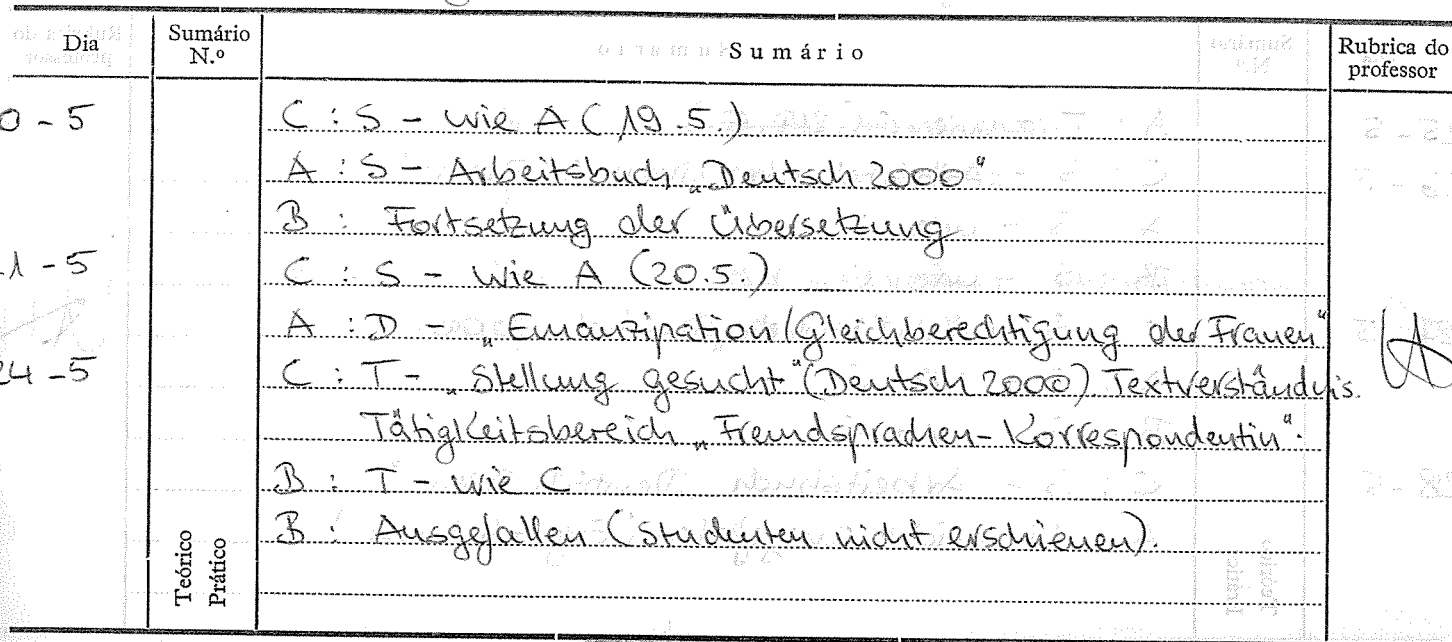 Dia Sumário N.º Sumário Rubrica do professor
0 - 5 C : S - wie A (19.5.)
A : S - Arbeitsbuch „Deutsch 2000"
B : Fortsetzung der Übersetzung
1 - 5 C : S - wie A (20.5.)
A : D - „Emanzipation/Gleichberechtigung der Frauen"
24 - 5 C : T - „Stellung gesucht" (Deutsch 2000) Textverständnis.
Tätigkeitsbereich „Fremdsprachen-Korrespondentin".
B : T - wie C
B : Ausgefallen (Studenten nicht erschienen).
Teórico
Prático